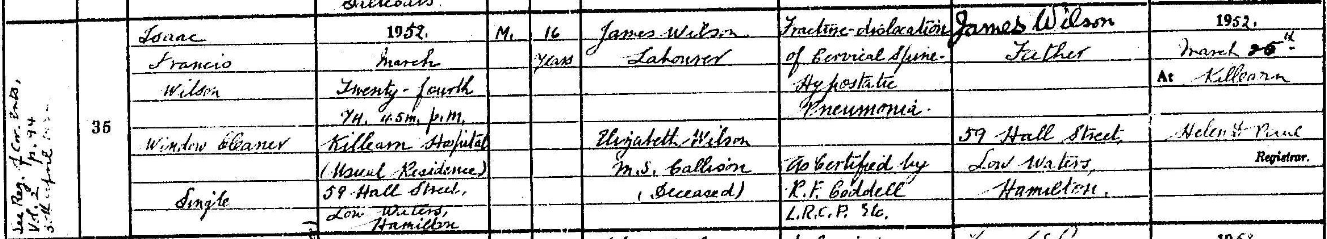 See Reg. of Cor. Ents, Vol. 2 p. 94
5th April 1952
35
Isaac
Francis
Wilson
Window Cleaner
Single
1952.
March
Twenty-fourth
7H. 45m. p.m.
Killearn Hospital
(Usual Residence)
59 Hall Street,
Low Waters,
Hamilton
M.
16
Years
James Wilson
Labourer
Elizabeth Wilson
M.S. Callison
(Deceased)
Fracture-dislocation
of Cervical Spine-
Hypostatic
Pneumonia.
As Certified by
R.F. Coddell
L.R.C.P. &c.
James Wilson
Father
59 Hall Street,
Low Waters,
Hamilton.
1952.
March 25th
At Killearn
Helen
Registrar.